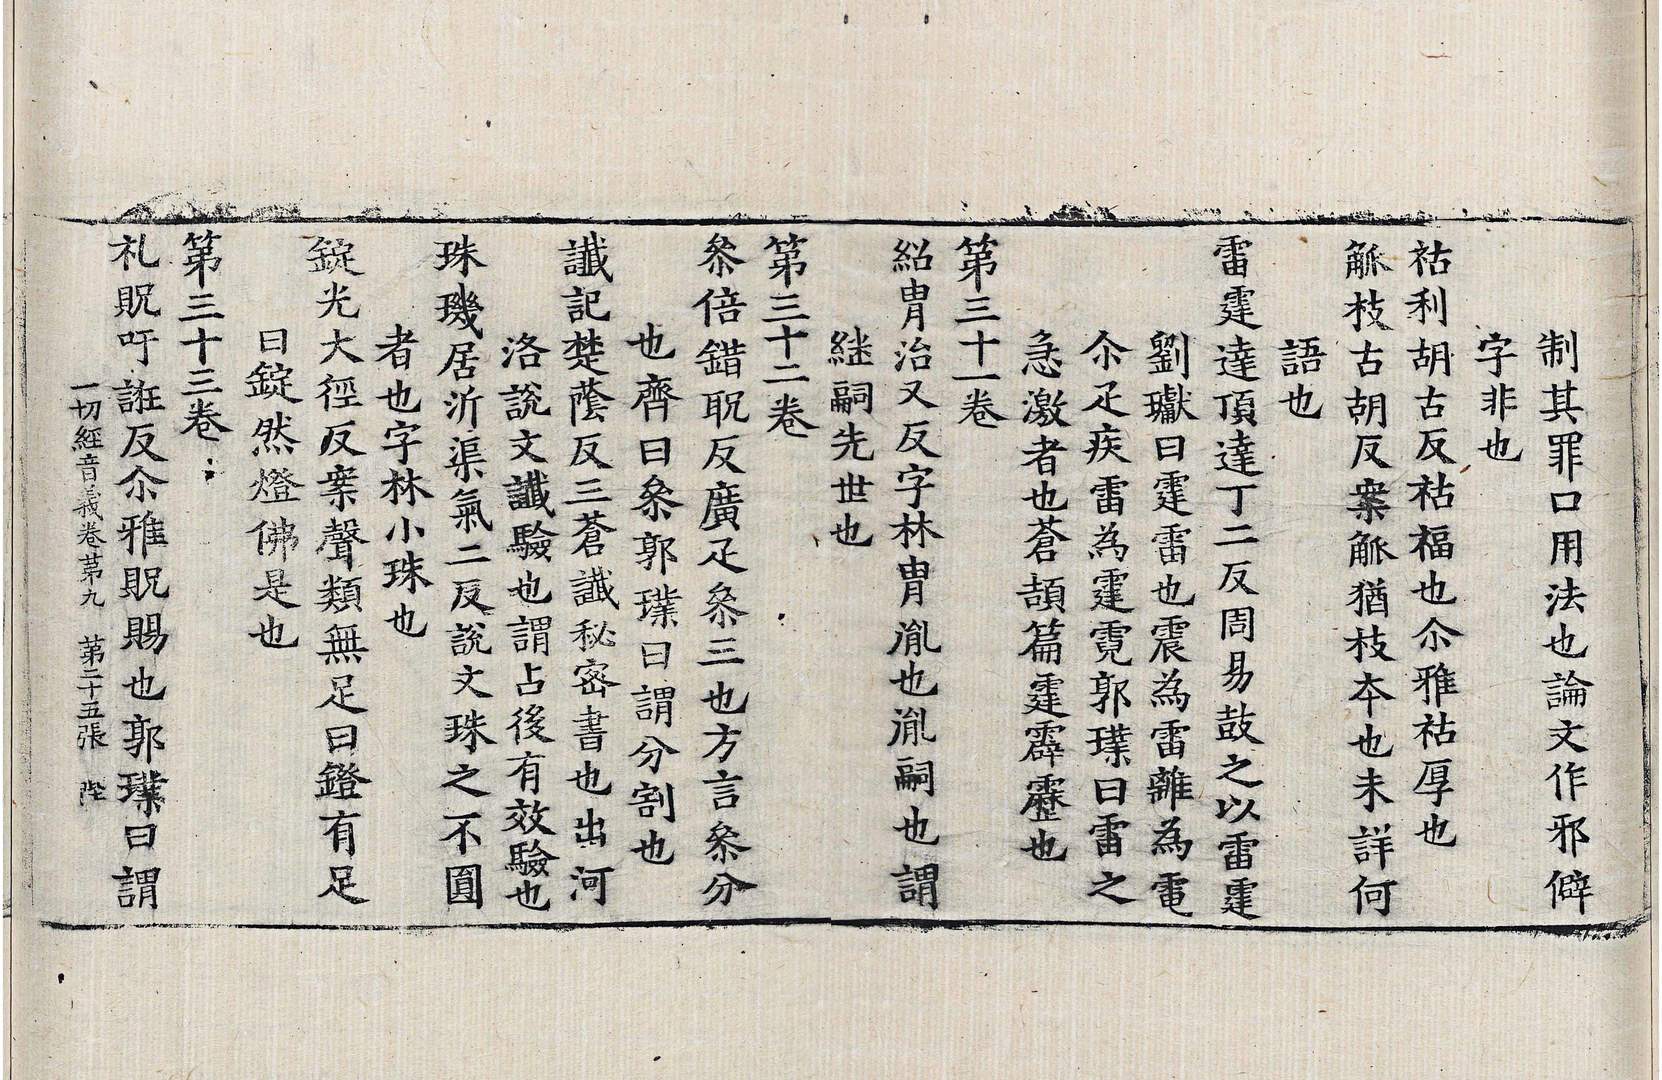 制其罪口用法也論文作邪僻
字非也
祜利胡古反祜福也尒雅祜厚也
觚枝古胡反案觚猶枝夲也未詳何
語也
雷霆達頂達丁二反周易鼓之以雷霆
劉瓛曰霆雷也震為雷離為電
尒疋疾雷為霆霓郭璞曰雷之
急激者也蒼頡篇霆霹靂也
第三十一卷
紹胄治又反字林胄胤也胤嗣也謂
継嗣先世也
第三十二卷
叅倍錯耽反廣疋叅三也方言叅分
也齊曰叅郭璞曰謂分割也
讖記楚蔭反三蒼讖秘密書也出河
洛說文讖驗也謂占後有效驗也
珠璣居沂渠氣二反說文珠之不圓
者也字林小珠也
錠光大徑反案聲類無足曰鐙有足
曰錠然燈佛是也
第三十三卷
礼貺吁誑反尒雅貺賜也郭璞曰謂
一切經音義卷苐九 第二十五張 陛